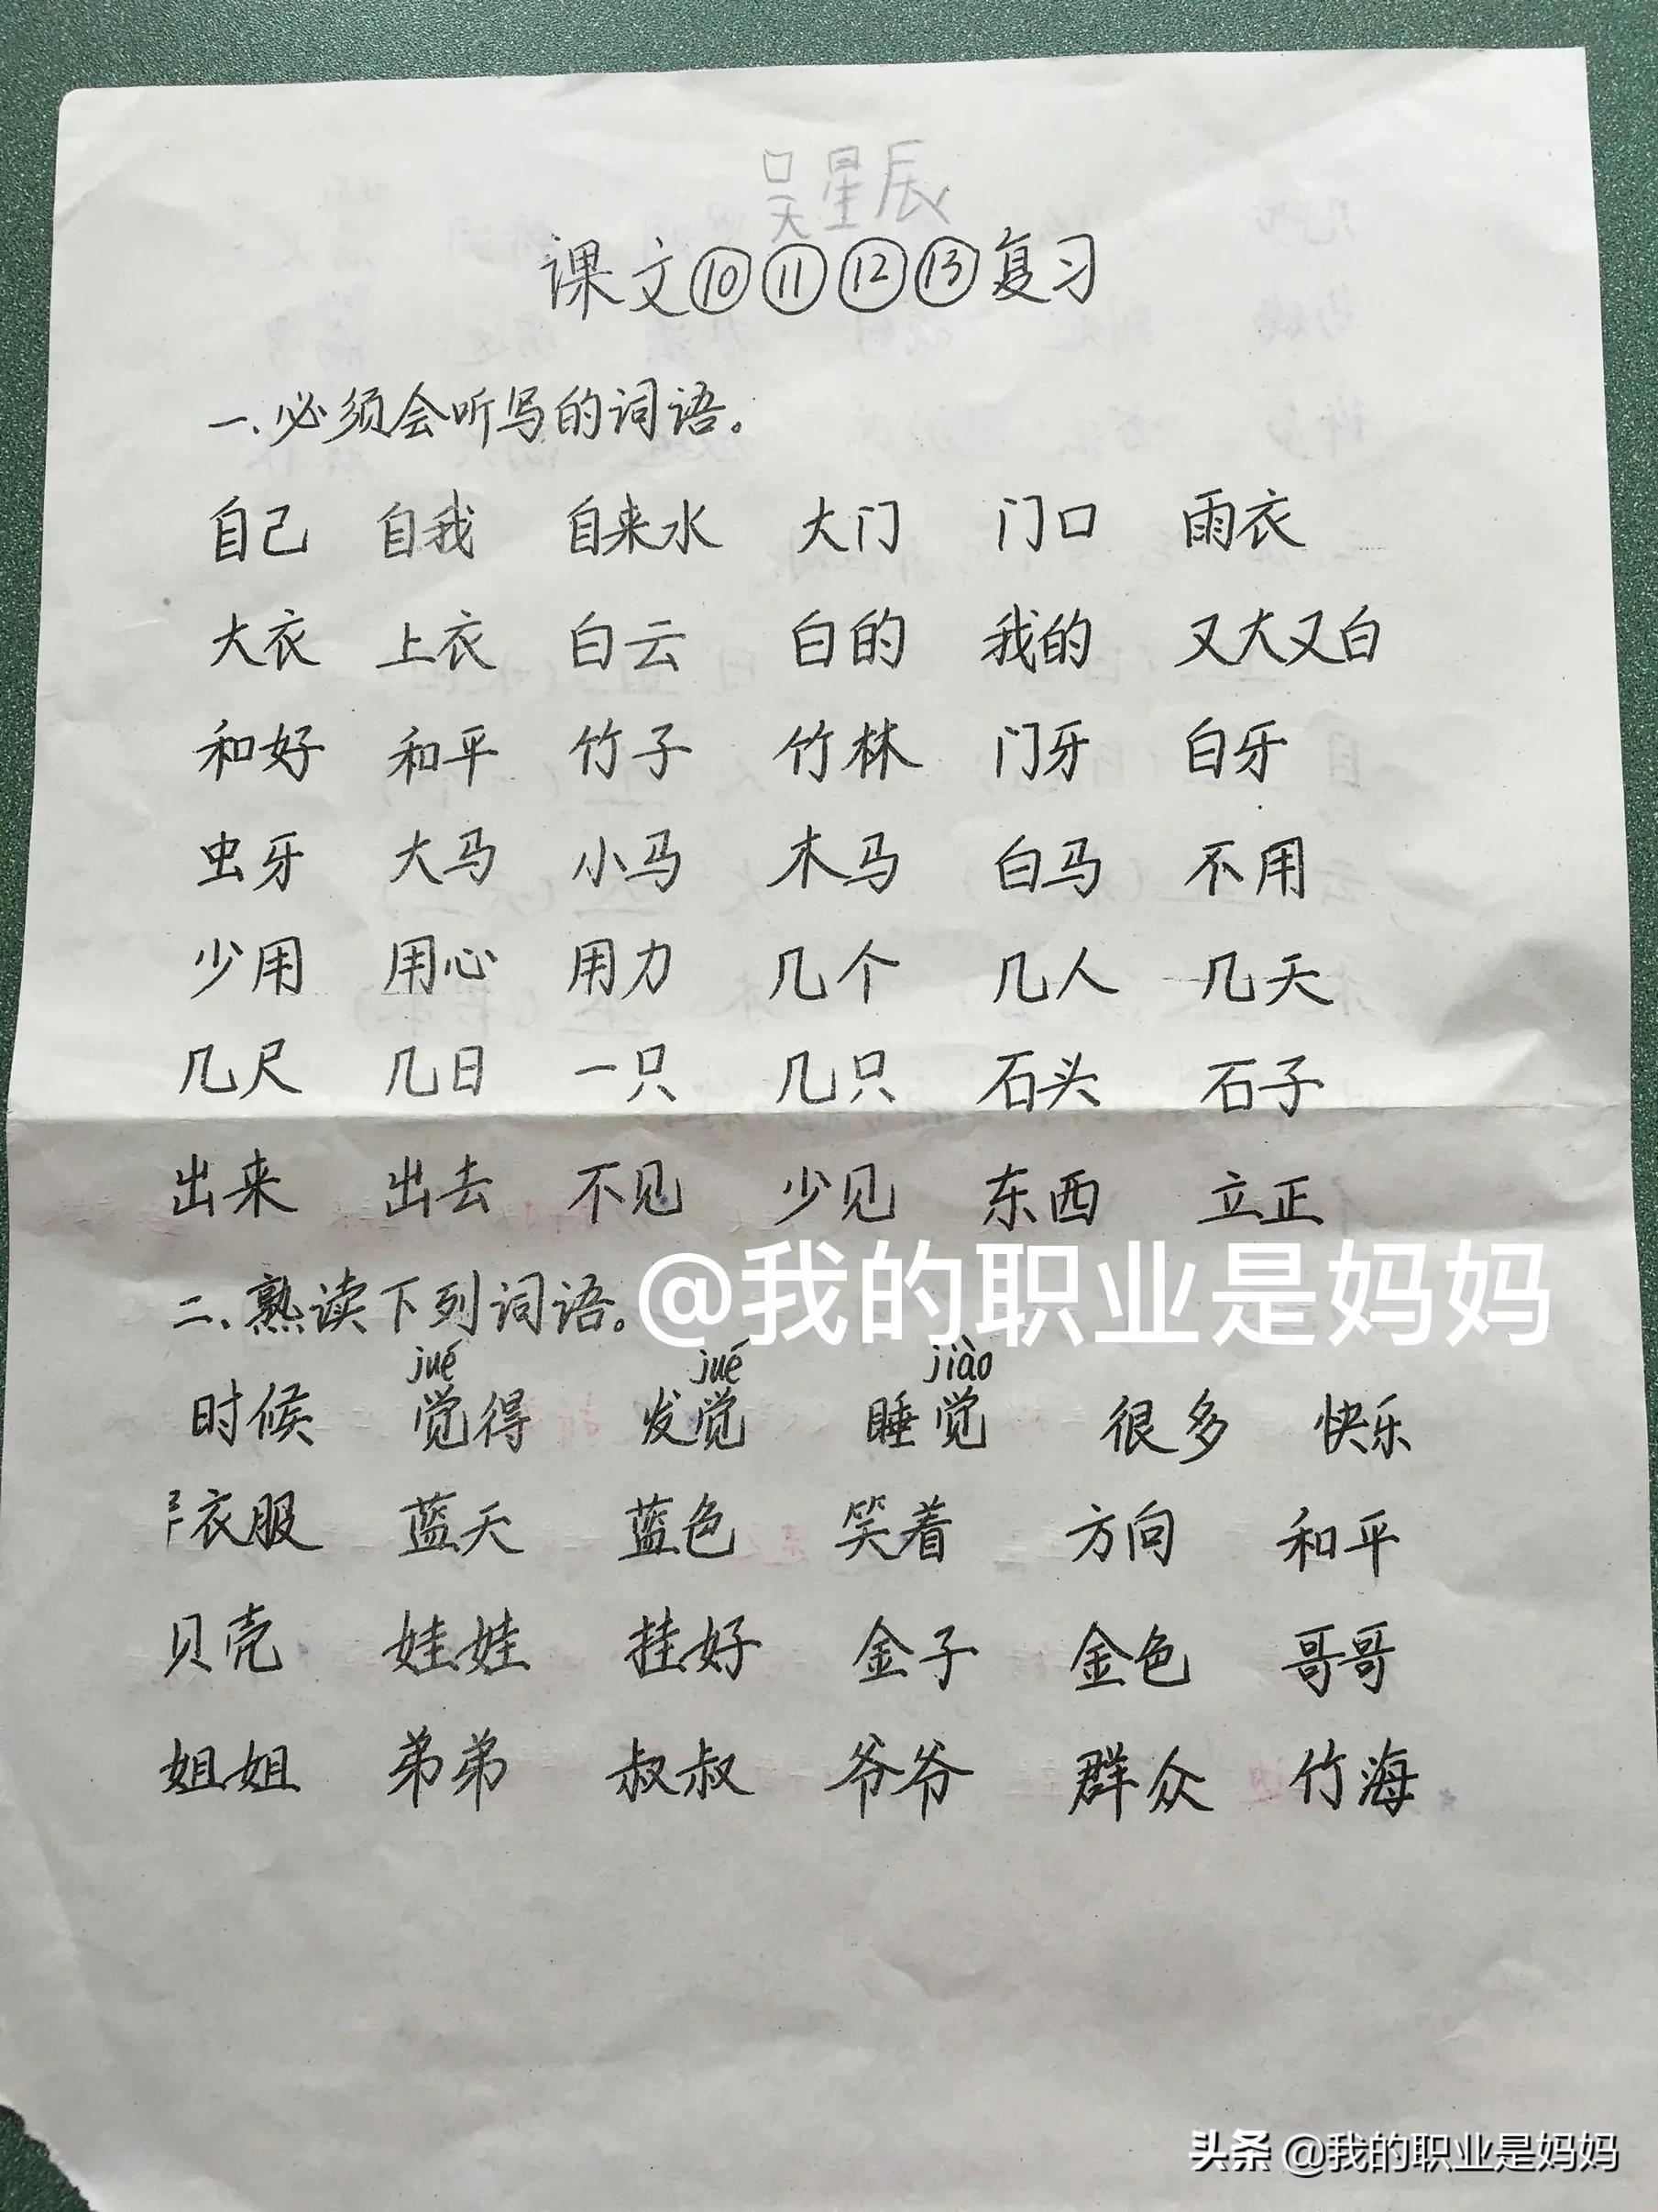 吴星辰
课文⑩⑪⑫⑬复习
一、必须会听写的词语。
自己 自我 自来水 大门 门口 雨衣
大衣 上衣 白云 白的 我的 又大又白
和好 和平 竹子 竹林 门牙 白牙
虫牙 大马 小马 木马 白马 不用
少用 用心 用力 几个 几人 几天
几尺 几日 一只 几只 石头 石子
出来 出去 不见 少见 东西 立正
@我的职业是妈妈
二、熟读下列词语。
jué jué jiào
时候 觉得 发觉 睡觉 很多 快乐
衣服 蓝天 蓝色 笑着 方向 和平
贝壳 娃娃 挂好 金子 金色 哥哥
姐姐 弟弟 叔叔 爷爷 群众 竹海
头条 @我的职业是妈妈